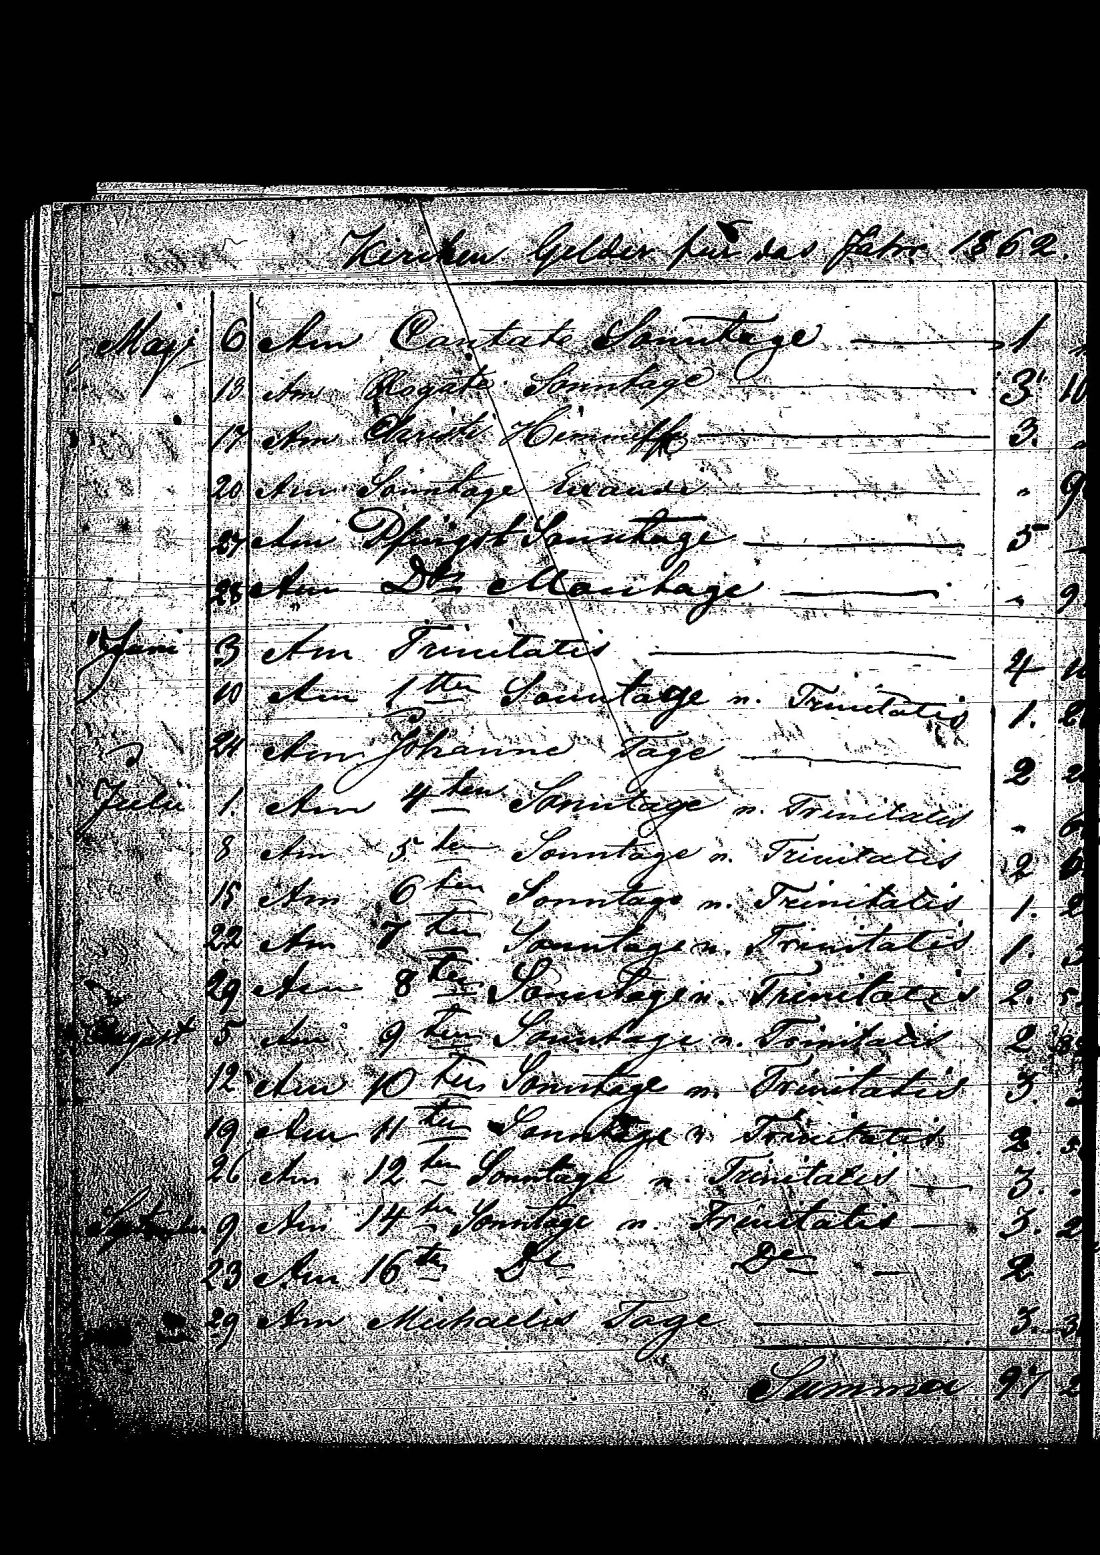 Kirchen Gelder für das Jahr 1862.
May 6 Am Cantate Sonntage 1
13 Am Rogate Sonntage 3 10
17 Am Christi Himmelf 3.
20 Am Sonntage Exaudi " 9
27 Am Pfingst Sonntage 5
28 Am Dto Montage " 9
" Juni 3 Am Trinitatis 4
10 Am 1ten Sonntage n. Trinitatis 1. 2
24 Am Johanne Tage 2 2
Julu 1. Am 4ten Sonntage n. Trinitatis "
8 Am 5ten Sonntage n. Trinitatis 2 6
15 Am 6ten Sonntage n. Trinitatis 1. 2
22 Am 7ten Sonntage n. Trinitatis 1.
29 Am 8ten Sonntage n. Trinitatis 2. 5
August 5 Am 9ten Sonntage n. Trinitatis 2
12 Am 10ten Sonntage n. Trinitatis 3
19 Am 11ten Sonntage n. Trinitatis 2.
26 Am 12ten Sonntage n. Trinitatis 3.
September 9 Am 14ten Sonntage n. Trinitatis 3. 2
23 Am 16ten Do Do 2
29 Am Michaelis Tage 3. 3
Summa 97 2